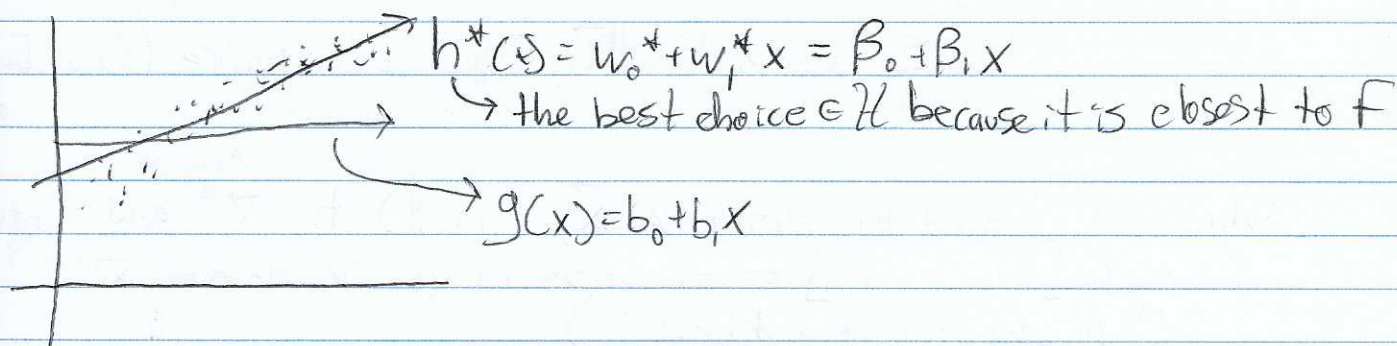 h*(x) = w₀* + w₁* x = β₀ + β₁ x
→ the best choice ∈ ℋ because it is closest to f
g(x) = b₀ + b₁ x